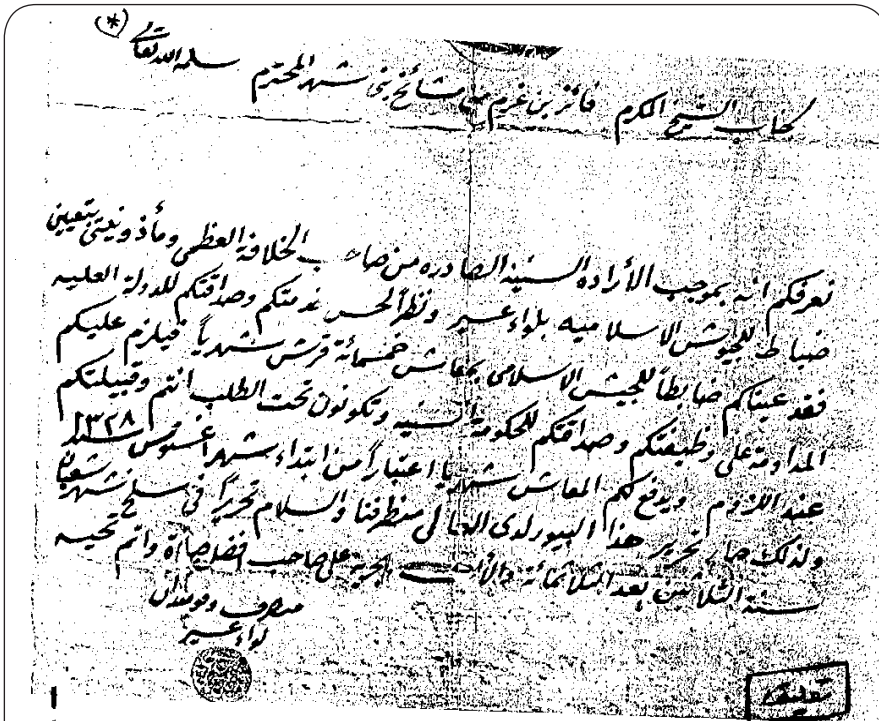 (*)
جناب الشيخ المكرم فائز بن غرم من مشائخ بني شهر المحترم سلمه الله تعالى
نعرفكم انه بموجب الأراده السنية الصادره من صاحب الخلافة العظمى ومأذونيتي بتعيين
ضباط للجيوش الاسلاميه بلواء عسير ونظراً لحسن خدمتكم وصداقتكم للدولة العليه
فقد عيناكم ضابطاً للجيش الاسلامي بمعاش خمسمائة قرش شهرياً فيلزم عليكم
المداومة على وظيفتكم وصداقتكم للحكومة السنيه وتكونون تحت الطلب انتم وقبيلتكم
عند اللزوم ويدفع لكم المعاش شهرياً اعتباراً من ابتداء شهر اغستوس سنه ١٣٢٨
ولذلك صار تحرير هذا البيورلدي العالي من طرفنا والسلام تحريراً في سلخ شهر شعبان
سنة الثلاثين بعد الثلاثمائة والألف هجرية على صاحب افضل صلاة واتم تحيه
متصرف وقومندان
لواء عسير
تعليق
١